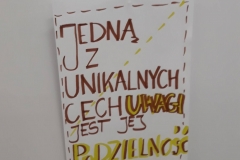 JEDNĄ
Z
UNIKALNYCH
CECH UWAGI
JEST JEJ
PODZIELNOŚĆ